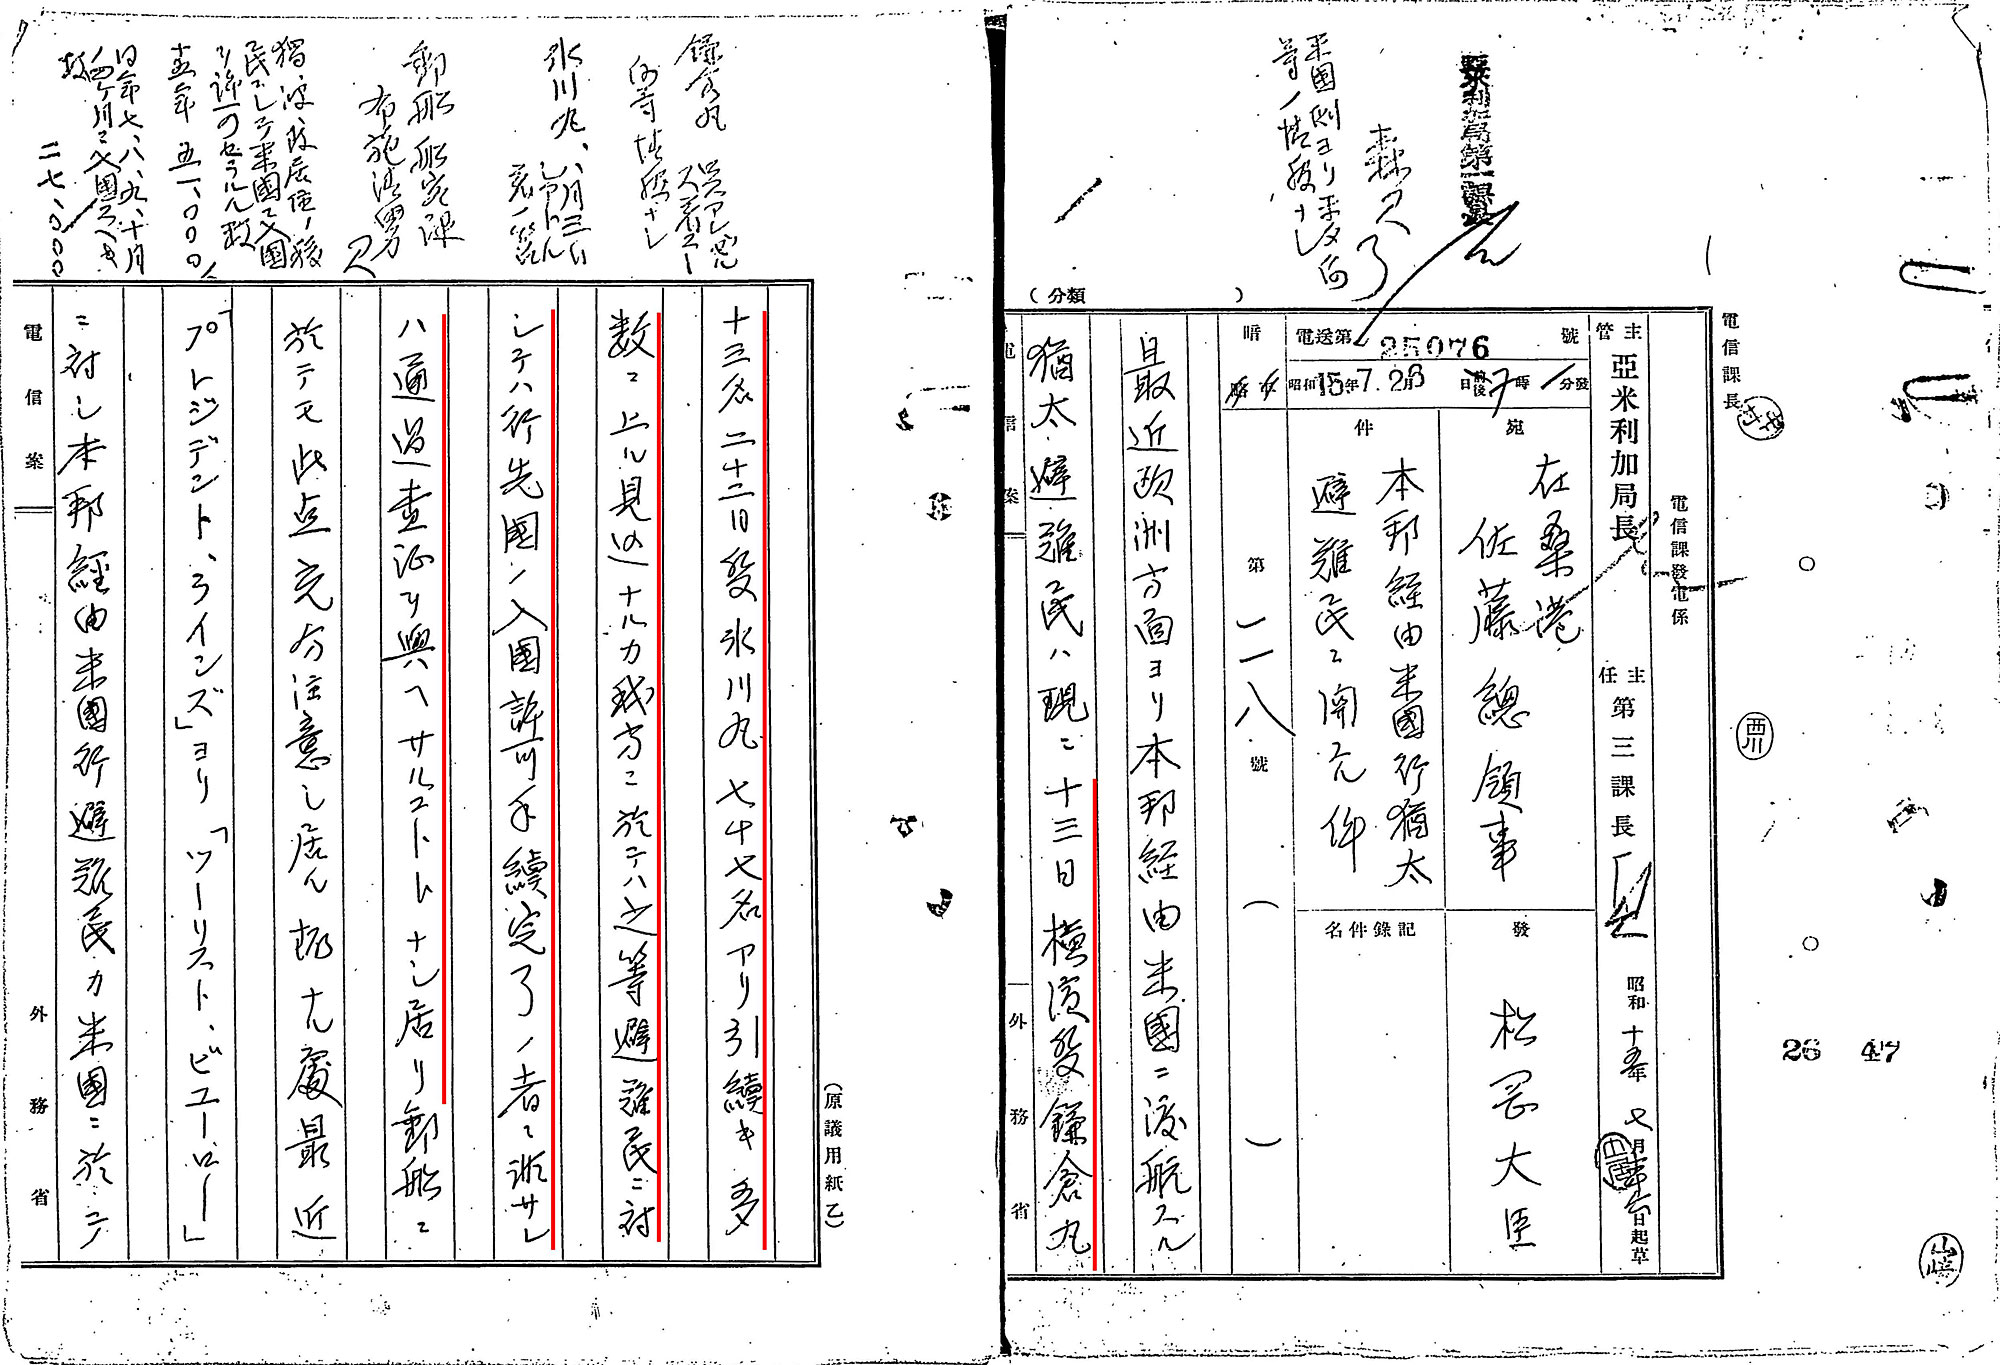 亞米利加局第一課長
森
了
米國側ヨリ平タ向
等ノ情報ナシ
(分類 )
電信課長
電信課發電係
主管 亞米利加局長
主任 第三課長
昭和十五年七月 日起草
電送第 25076 號
昭和15年7.26 日 後7時 分發
暗
第一二八號
( )
宛 在桑港
佐藤總領事
發 松岡大臣
件 本邦経由米國行猶太
避難民ニ関スル件
記錄件名
最近欧洲方面ヨリ本邦経由米國ニ渡航スル
猶太避難民ハ現ニ十三日横濱發鎌倉丸
電信案 外務省
26 47
西川
山崎
十三名二十二日發氷川丸七十七名アリ引續キ多
数ニ上ル見込ナルカ我方ニ於テハ之等避難民ニ対
シテハ行先國ノ入國許可手續完了ノ者ニ非サレ
ハ通過査証ヲ與ヘサルコトトナシ居リ郵船ニ
於テモ此点充分注意シ居ル趣ナル處最近
「プレジデント、ラインズ」ヨリ「ツーリスト、ビユーロー」
ニ対シ本邦経由米國行避難民カ米國ニ於テ
電信案 外務省
(原議用紙乙)
鎌倉丸
何等情報ナシ
氷川丸、八月三日
シアトル
着ノ筈
郵船船客課
布施
民ニシテ米國ニ入國
ヲ許可セラルル数
五一、〇〇〇
同年七、八、九、十月
四ケ月ニ入國スヘキ
数
二七、〇〇〇